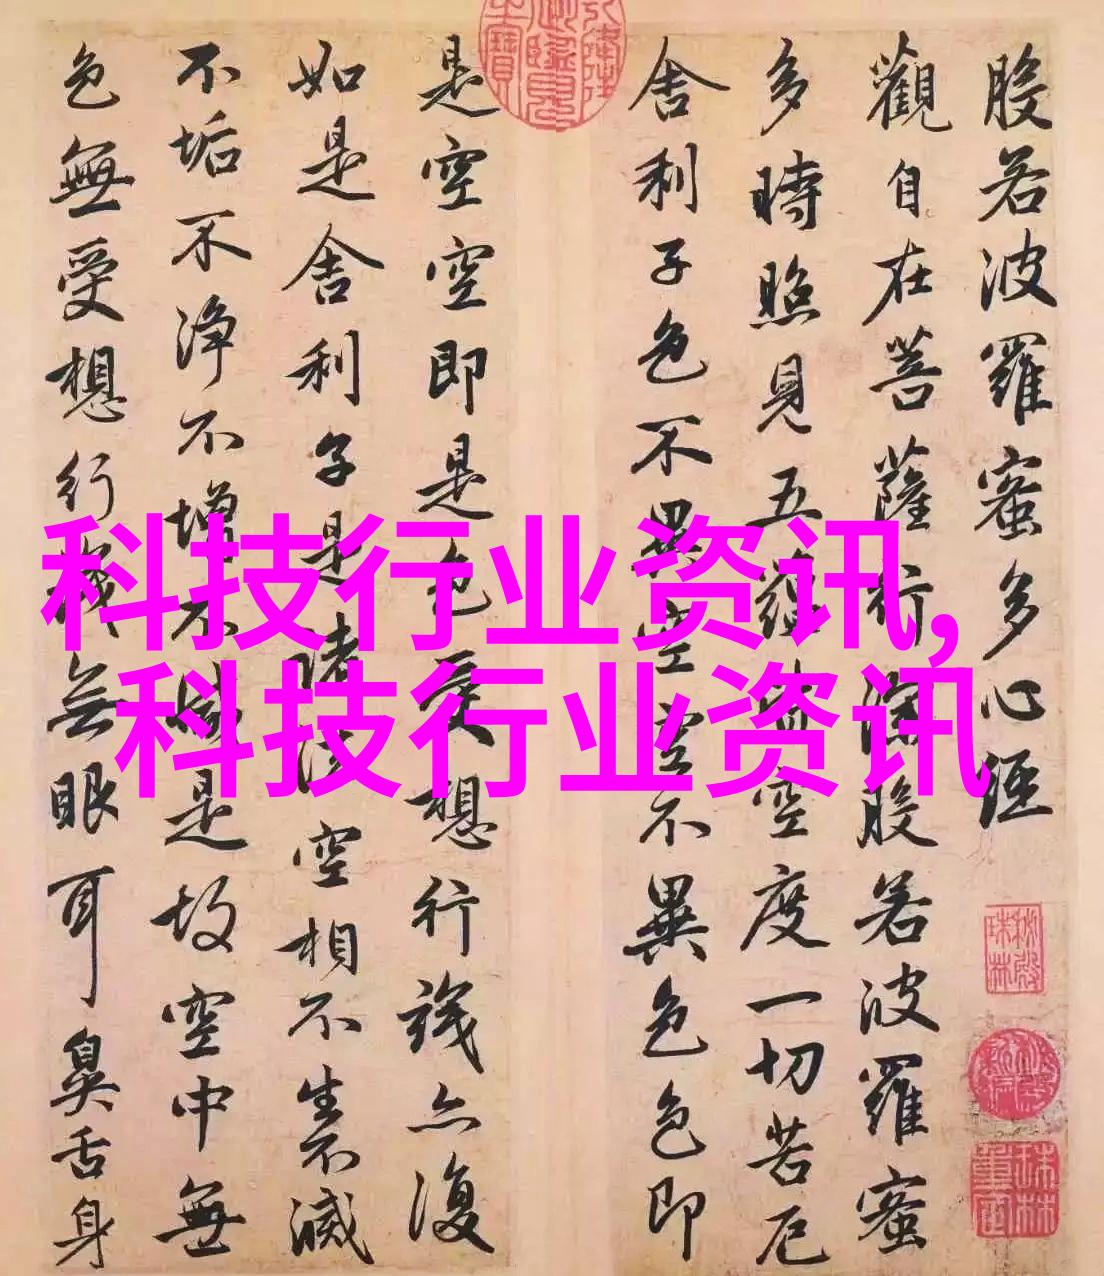 般若波羅蜜多心經
觀自在菩薩行深般若波羅蜜
多時照見五蘊皆空度一切苦厄
舍利子色不異空空不異色色即
是空空即是色受想行識亦復
如是舍利子是諸法空相不生不滅
不垢不淨不增不減是故空中無
色無受想行識無眼耳鼻舌身
科技行业资讯,
科技行业资讯
秘殿珠林